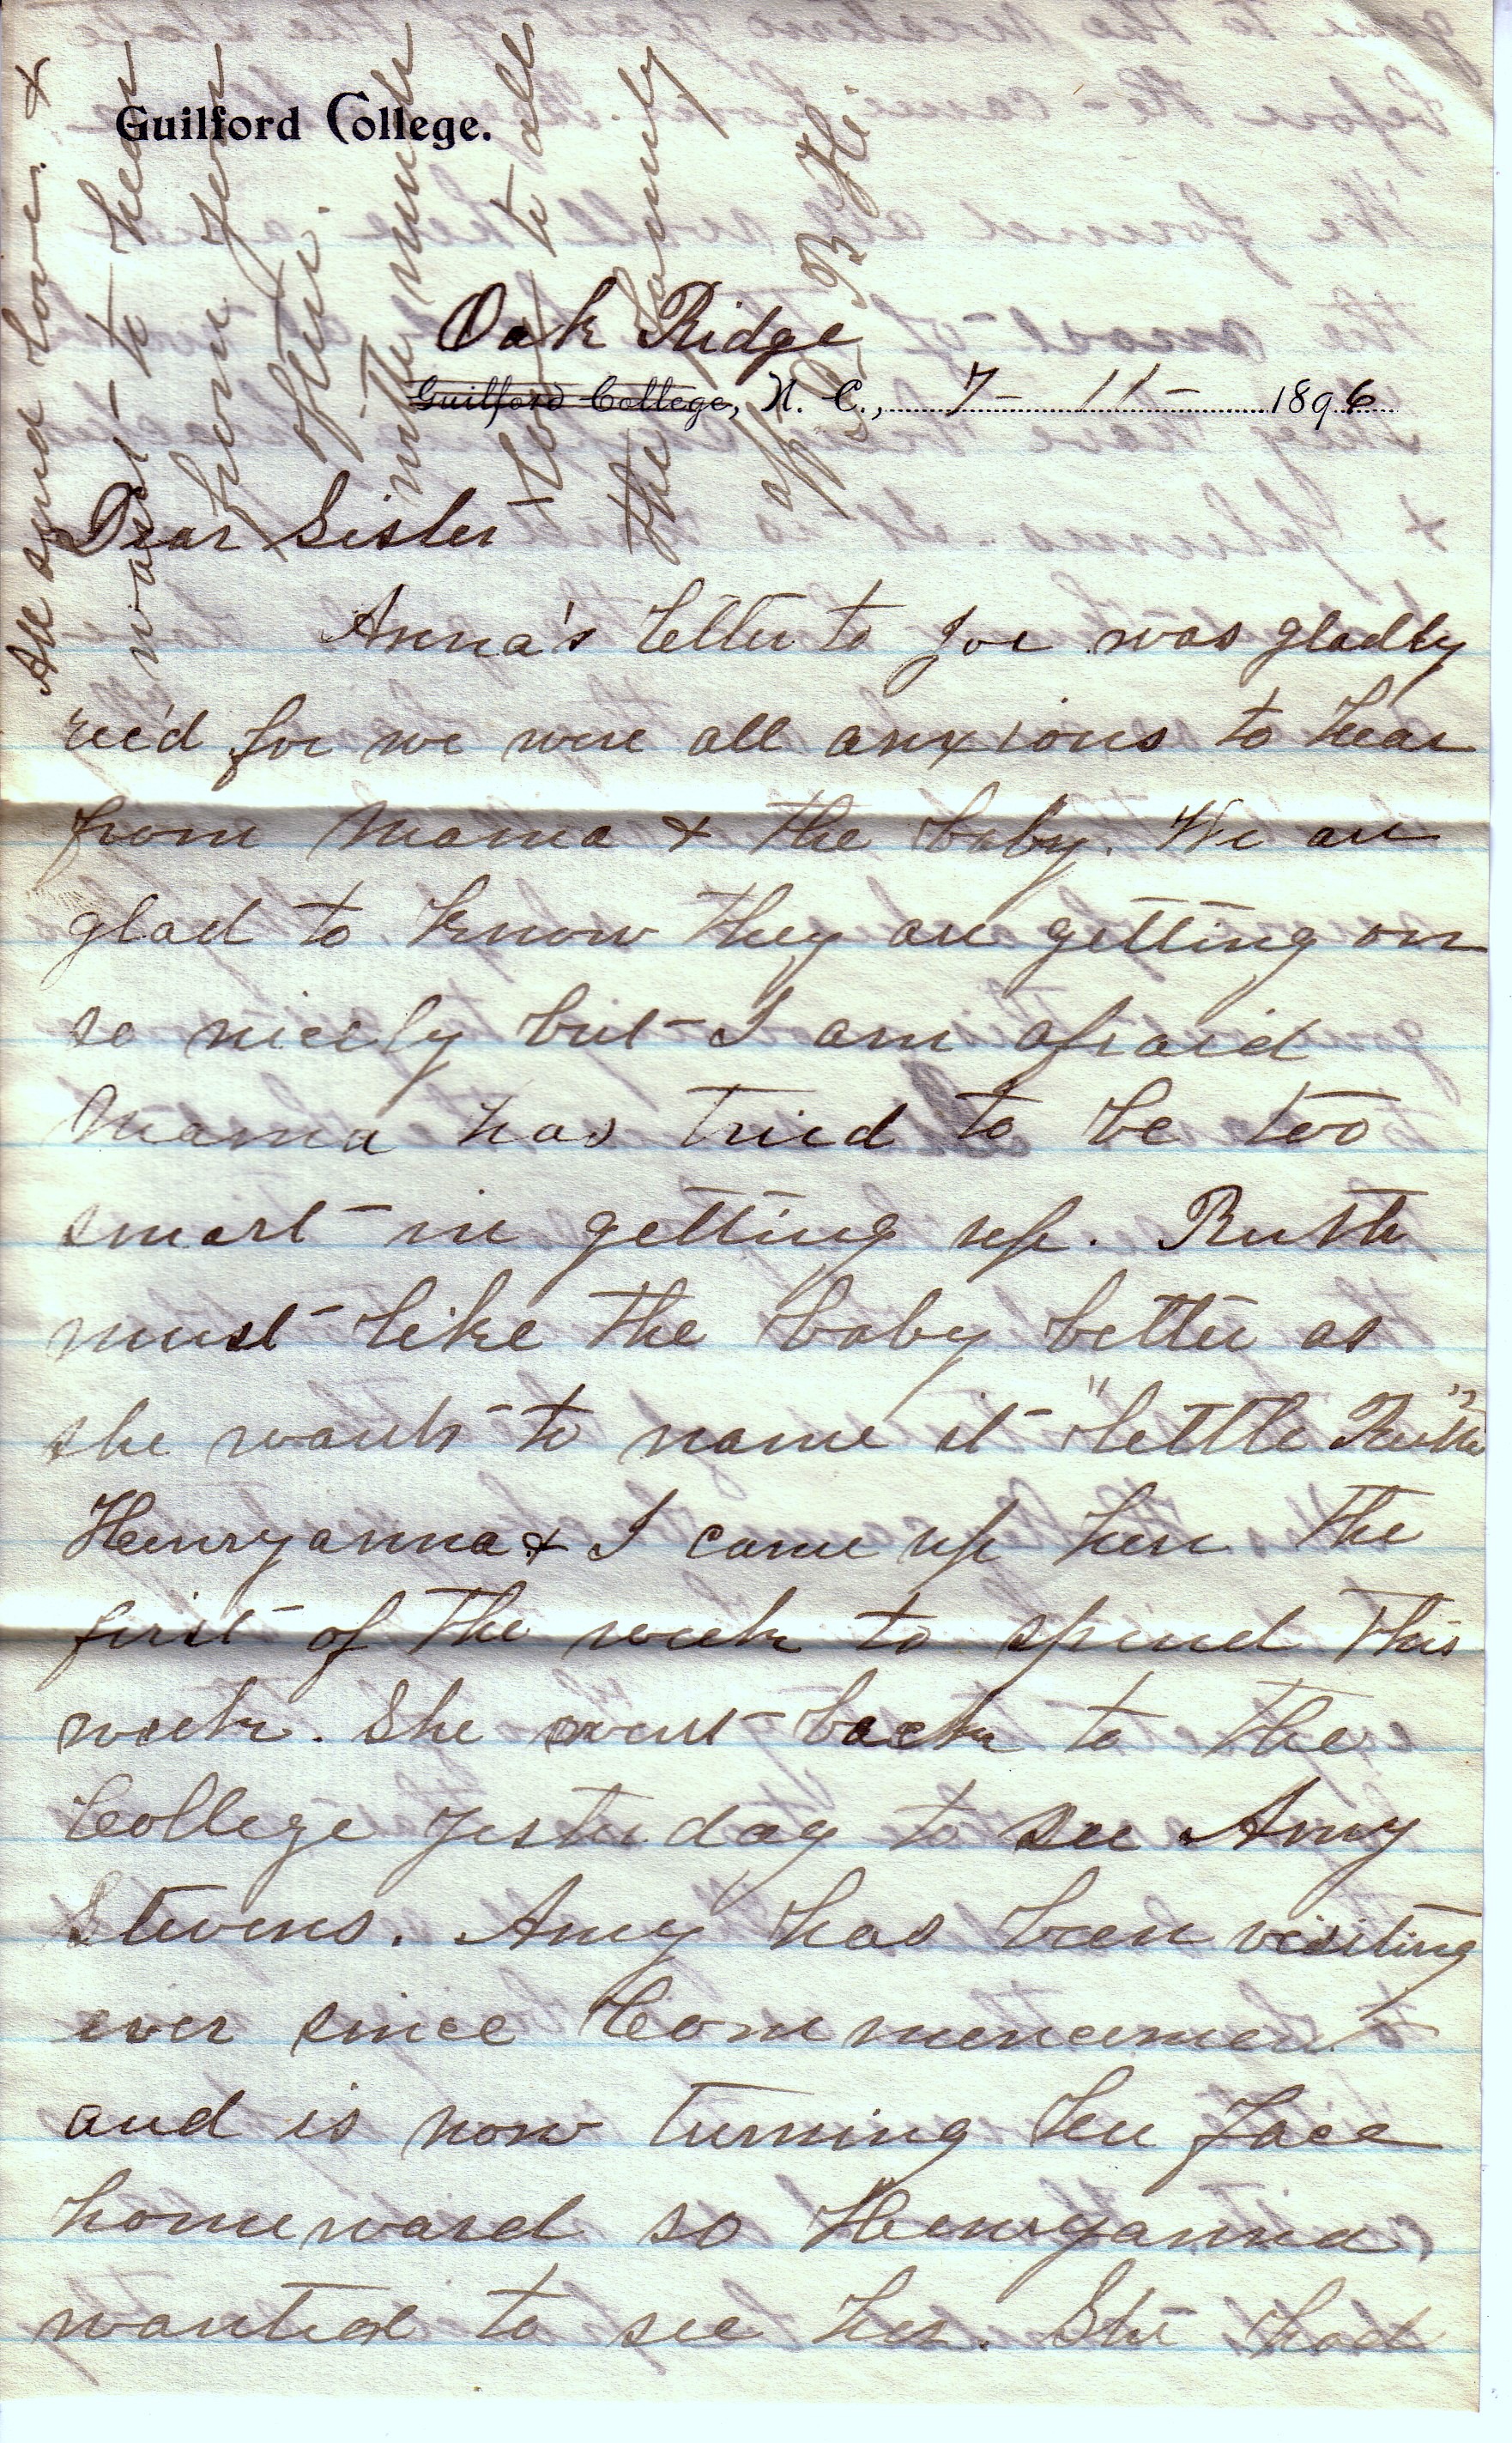 Guilford College.
Oak Ridge
Guilford College, N. C., 7 - 11 - 1896
Dear Sister
Anna's letter to Joe was gladly
rec'd for we were all anxious to hear
from Mama & the baby. We are
glad to know they are getting on
so nicely but I am afraid
Mama has tried to be too
smart in getting up. Ruth
must like the baby better as
she wants to name it "little Ruth"
Henryanna & I came up here the
first of the week to spend this
week. She went back to the
College yesterday to see Amy
Stevens. Amy has been visiting
ever since Commencement
and is now turning her face
homeward so Henryanna
wanted to see her. She had
All send love &
want to hear
from you
often
with much
love to all
the family
aff